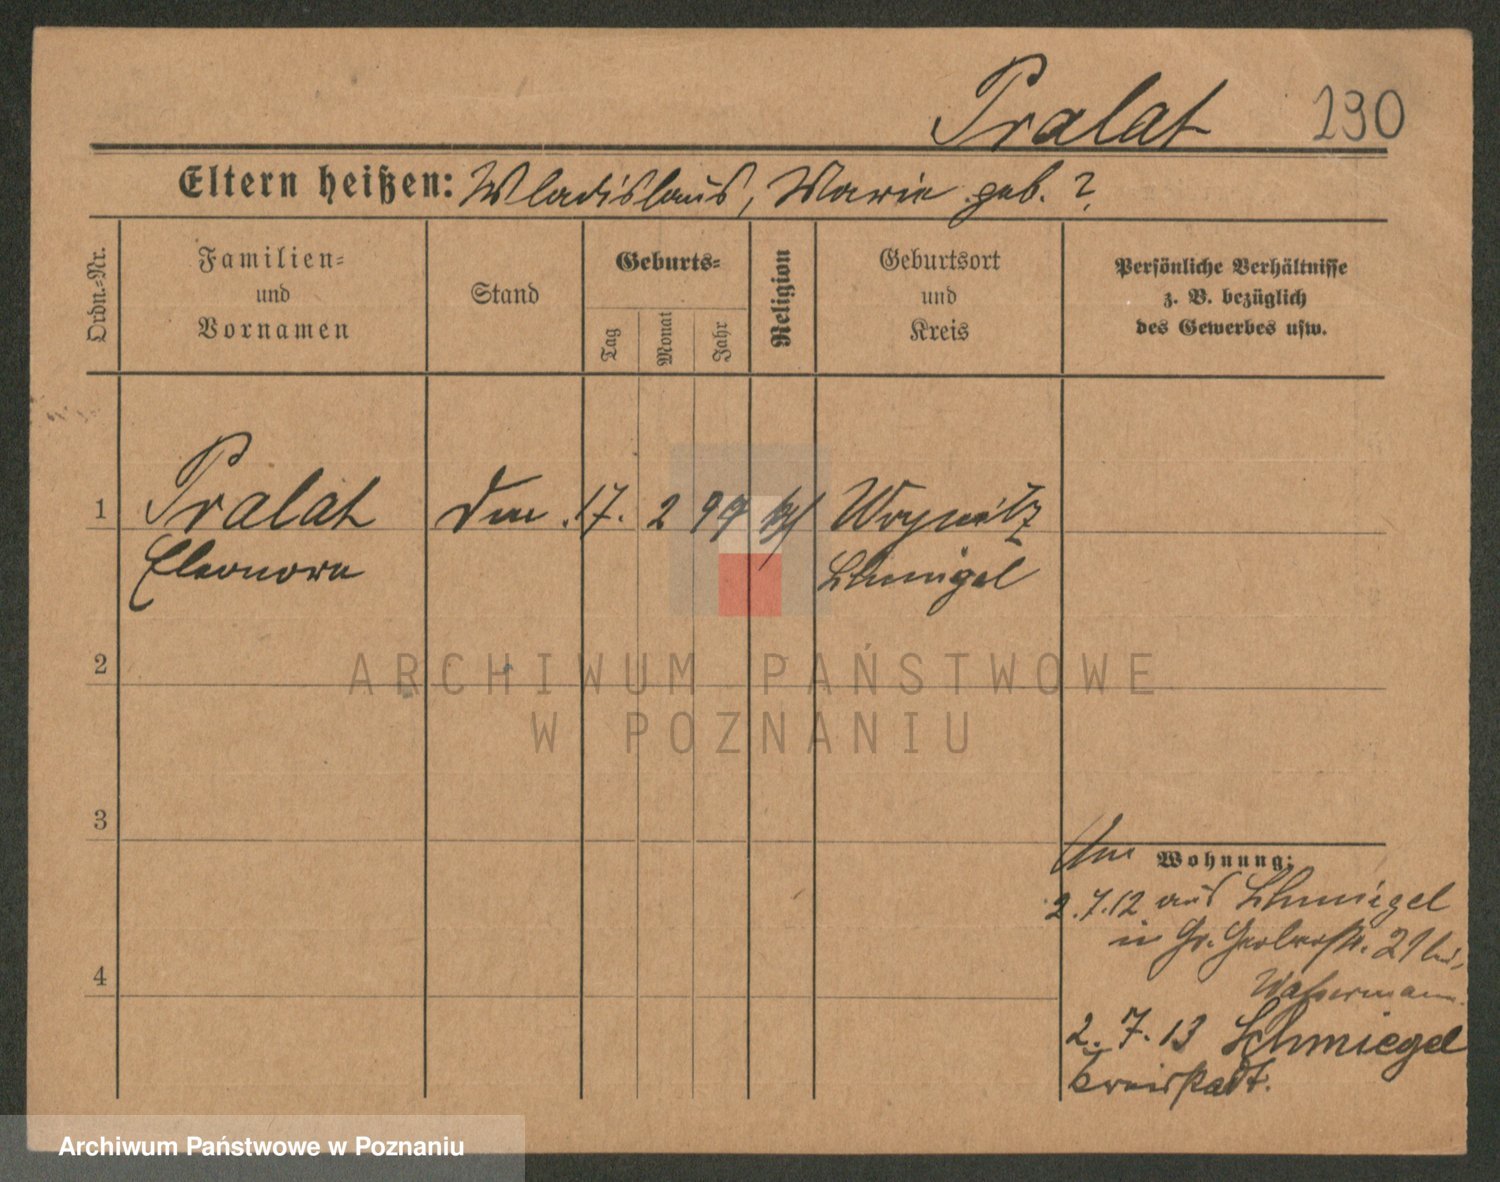 Pralat 290
Eltern heißen: Wladislaus, Marie geb. ?
Ordn.-Nr.
Familien-
und
Vornamen
Stand
Geburts-
Tag
Monat
Jahr
Religion
Geburtsort
und
Kreis
Persönliche Verhältnisse
z. B. bezüglich
des Gewerbes usw.
1 Pralat 17. 2 99 kf Woynitz
Eleonora Schmiegel
2
3
4
Wohnung:
2.7.12 aus Schmiegel
in Gr. 21 bei
Wassermann
2. 7. 13 Schmiegel
Kreisstadt.
ARCHIWUM PAŃSTWOWE
W POZNANIU
Archiwum Państwowe w Poznaniu